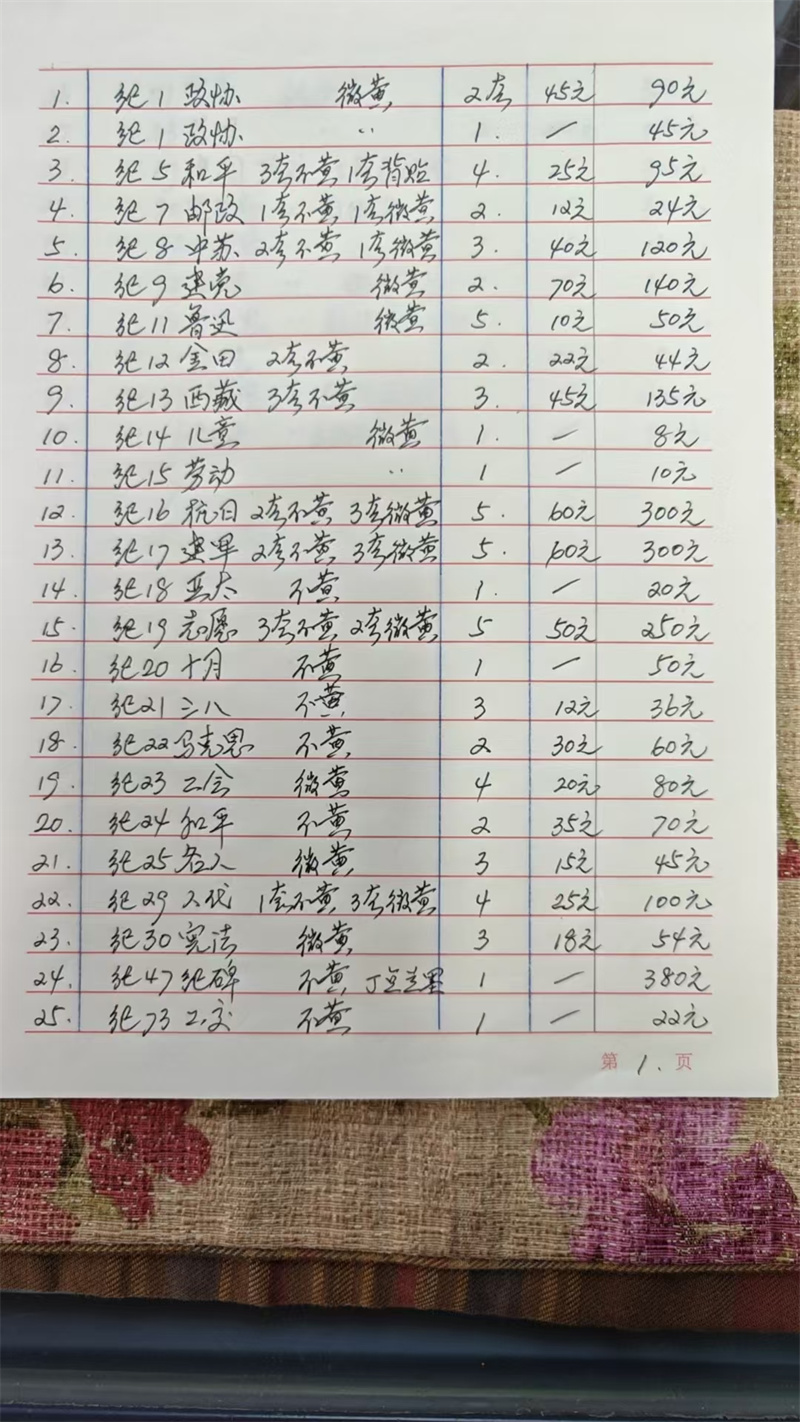 1. 纪1 政协 微黄 2套 45元 90元
2. 纪1 政协 〃 1. — 45元
3. 纪5 和平 3套不黄 1套背贴 4. 25元 95元
4. 纪7 邮政 1套不黄 1套微黄 2. 12元 24元
5. 纪8 中苏 2套不黄 1套微黄 3. 40元 120元
6. 纪9 建党 微黄 2. 70元 140元
7. 纪11 鲁迅 微黄 5. 10元 50元
8. 纪12 金田 2套不黄 2. 22元 44元
9. 纪13 西藏 3套不黄 3. 45元 135元
10. 纪14 儿童 微黄 1. — 8元
11. 纪15 劳动 〃 1 — 10元
12. 纪16 抗日 2套不黄 3套微黄 5. 60元 300元
13. 纪17 建军 2套不黄 3套微黄 5. 60元 300元
14. 纪18 亚太 不黄 1. — 20元
15. 纪19 志愿 3套不黄 2套微黄 5 50元 250元
16. 纪20 十月 不黄 1 — 50元
17. 纪21 三八 不黄 3 12元 36元
18. 纪22 马克思 不黄 2 30元 60元
19. 纪23 工会 微黄 4 20元 80元
20. 纪24 和平 不黄 2 35元 70元
21. 纪25 名人 微黄 3 15元 45元
22. 纪29 人代 1套不黄 3套微黄 4 25元 100元
23. 纪30 宪法 微黄 3 18元 54元
24. 纪47 纪碑 不黄 1 — 380元
25. 纪73 工交 不黄 1 — 22元
第 1. 页